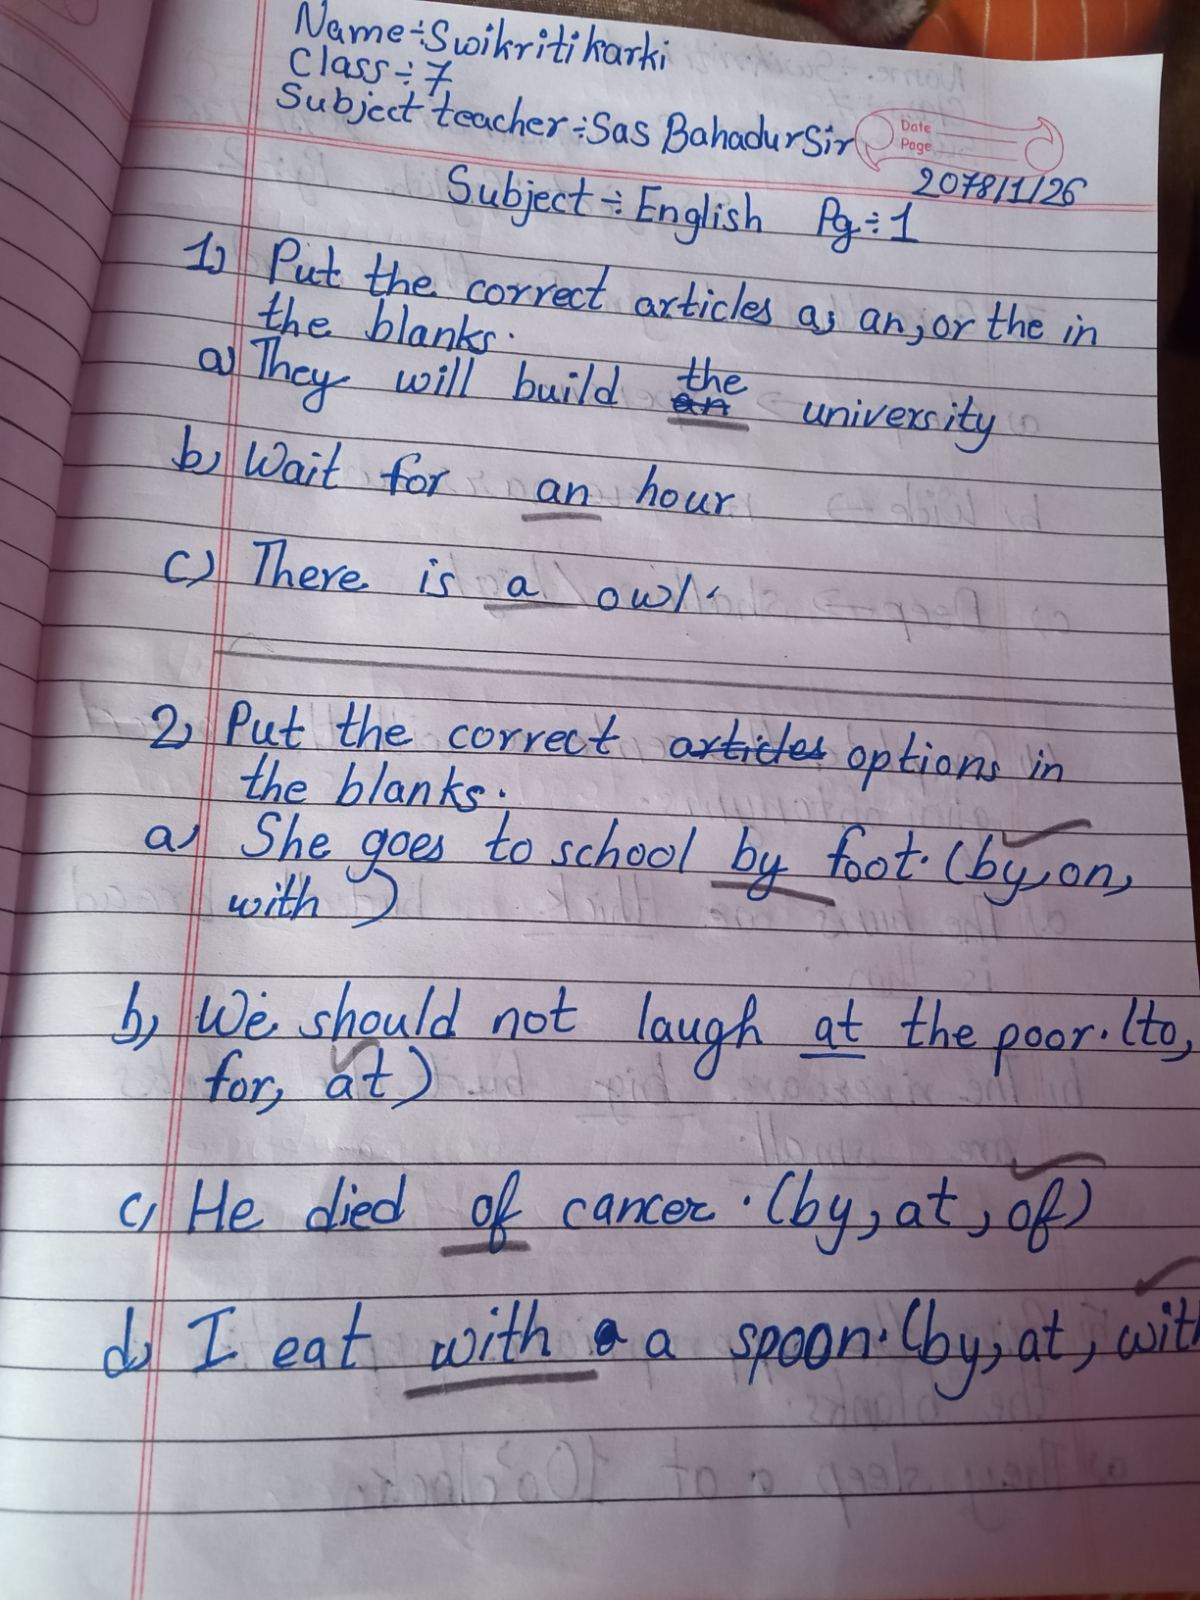 Name÷Swikriti karki
Class÷7
Subject teacher÷Sas Bahadur Sir
Date
Page
2078/1/26
Subject÷English Pg÷1
1) Put the correct articles a, an, or the in
the blanks.
a) They will build the an university
b) Wait for an hour
c) There is a owl.
2) Put the correct articles options in
the blanks.
a) She goes to school by foot. (by, on,
with)
b) We should not laugh at the poor. (to,
for, at)
c) He died of cancer. (by, at, of)
d) I eat with a spoon. (by, at, with